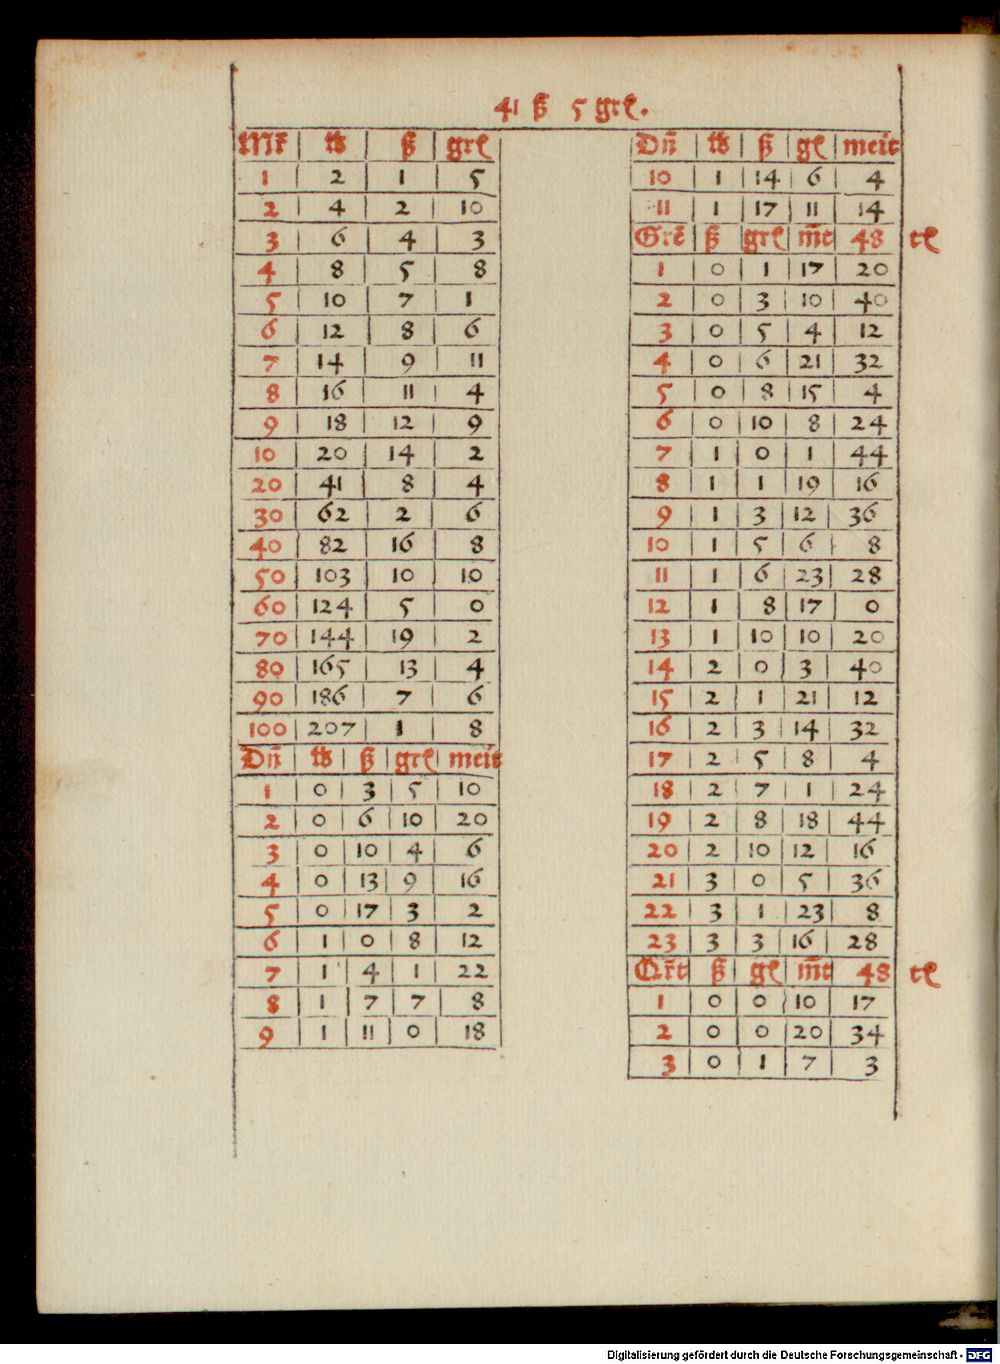 41 ß 5 grł.
Mr̄ | ℔ | ß | grł
1 | 2 | 1 | 5
2 | 4 | 2 | 10
3 | 6 | 4 | 3
4 | 8 | 5 | 8
5 | 10 | 7 | 1
6 | 12 | 8 | 6
7 | 14 | 9 | 11
8 | 16 | 11 | 4
9 | 18 | 12 | 9
10 | 20 | 14 | 2
20 | 41 | 8 | 4
30 | 62 | 2 | 6
40 | 82 | 16 | 8
50 | 103 | 10 | 10
60 | 124 | 5 | 0
70 | 144 | 19 | 2
80 | 165 | 13 | 4
90 | 186 | 7 | 6
100 | 207 | 1 | 8
Dn̄ | ℔ | ß | grł | meit
1 | 0 | 3 | 5 | 10
2 | 0 | 6 | 10 | 20
3 | 0 | 10 | 4 | 6
4 | 0 | 13 | 9 | 16
5 | 0 | 17 | 3 | 2
6 | 1 | 0 | 8 | 12
7 | 1 | 4 | 1 | 22
8 | 1 | 7 | 7 | 8
9 | 1 | 11 | 0 | 18
Dn̄ | ℔ | ß | gł | meit
10 | 1 | 14 | 6 | 4
11 | 1 | 17 | 11 | 14
Grē | ß | grł | m̄t | 48 tł
1 | 0 | 1 | 17 | 20
2 | 0 | 3 | 10 | 40
3 | 0 | 5 | 4 | 12
4 | 0 | 6 | 21 | 32
5 | 0 | 8 | 15 | 4
6 | 0 | 10 | 8 | 24
7 | 1 | 0 | 1 | 44
8 | 1 | 1 | 19 | 16
9 | 1 | 3 | 12 | 36
10 | 1 | 5 | 6 | 8
11 | 1 | 6 | 23 | 28
12 | 1 | 8 | 17 | 0
13 | 1 | 10 | 10 | 20
14 | 2 | 0 | 3 | 40
15 | 2 | 1 | 21 | 12
16 | 2 | 3 | 14 | 32
17 | 2 | 5 | 8 | 4
18 | 2 | 7 | 1 | 24
19 | 2 | 8 | 18 | 44
20 | 2 | 10 | 12 | 16
21 | 3 | 0 | 5 | 36
22 | 3 | 1 | 23 | 8
23 | 3 | 3 | 16 | 28
Qr̄t | ß | gł | m̄t | 48 tł
1 | 0 | 0 | 10 | 17
2 | 0 | 0 | 20 | 34
3 | 0 | 1 | 7 | 3
Digitalisierung gefördert durch die Deutsche Forschungsgemeinschaft - DFG